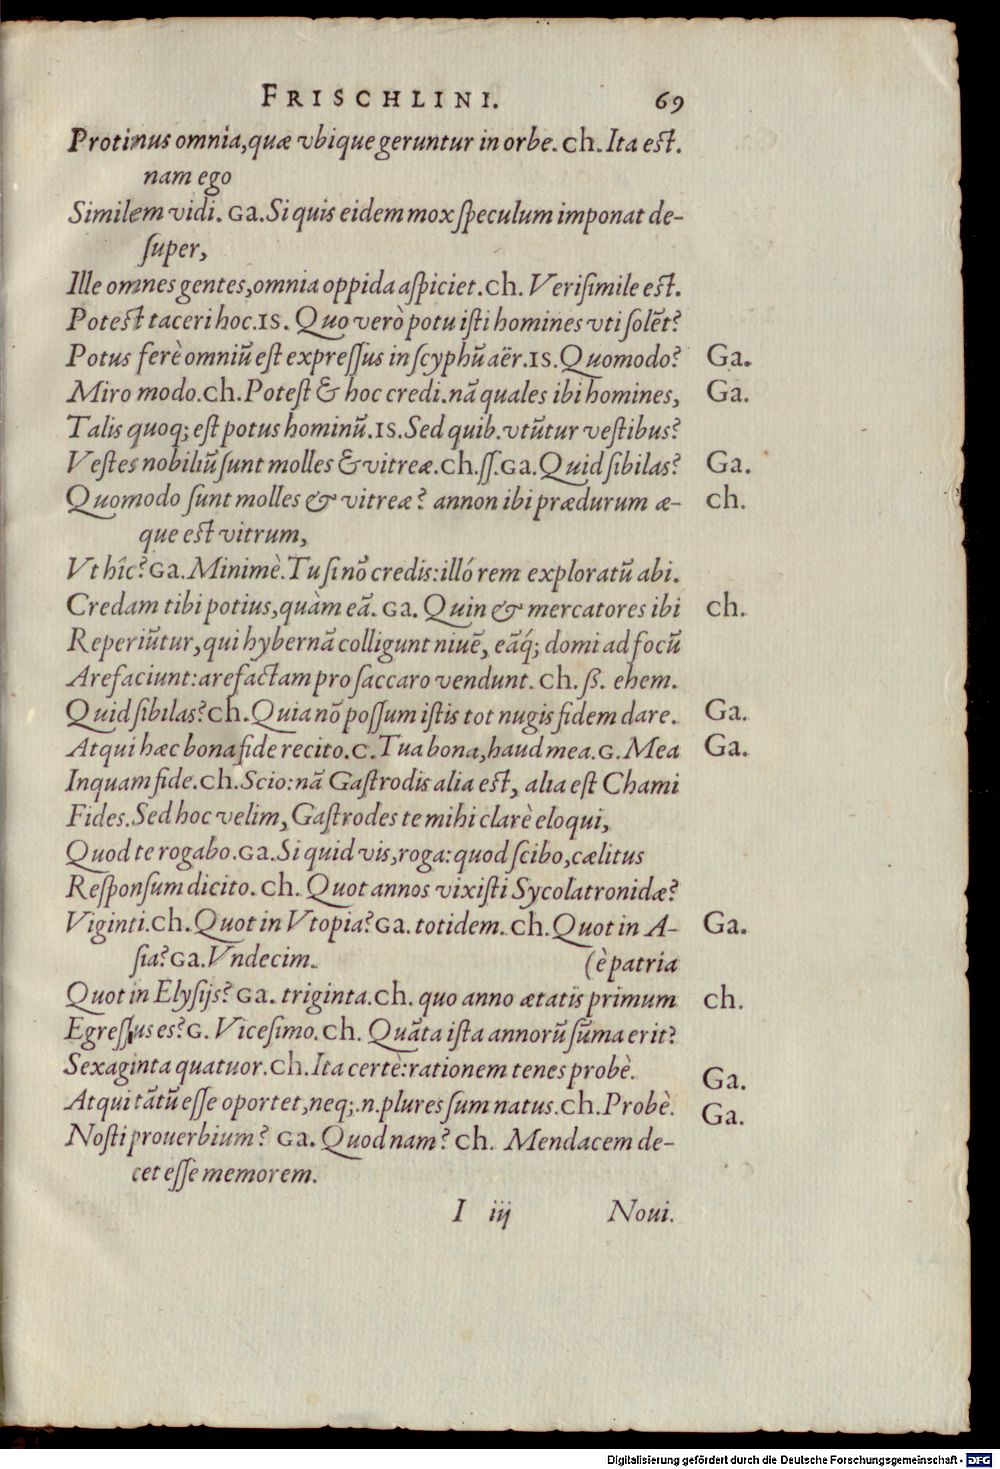 FRISCHLINI. 69
Protinus omnia, quæ vbique geruntur in orbe. Ch. Ita est.
nam ego
Similem vidi. Ga. Si quis eidem mox speculum imponat de-
super,
Ille omnes gentes, omnia oppida aspiciet. Ch. Verisimile est.
Potest taceri hoc. IS. Quo verò potu isti homines vti solēt?
Potus ferè omniũ est expressus in scyphũ aër. IS. Quomodo? Ga.
Miro modo. Ch. Potest & hoc credi. nã quales ibi homines, Ga.
Talis quoq; est potus hominũ. IS. Sed quib. vtũtur vestibus?
Vestes nobiliũ sunt molles & vitreæ. Ch. ss. Ga. Quid sibilas? Ga.
Quomodo sunt molles & vitreæ? annon ibi prædurum æ- Ch.
que est vitrum,
Vt hîc? Ga. Minimè. Tu si nõ credis: illó rem exploratũ abi.
Credam tibi potius, quàm eã. Ga. Quin & mercatores ibi Ch.
Reperiũtur, qui hybernã colligunt niuẽ, eãq́; domi ad focũ
Arefaciunt: arefactam pro saccaro vendunt. Ch. ß. ehem.
Quid sibilas? Ch. Quia nõ possum istis tot nugis fidem dare. Ga.
Atqui hæc bona fide recito. C. Tua bona, haud mea. G. Mea Ga.
Inquam fide. Ch. Scio: nã Gastrodis alia est, alia est Chami
Fides. Sed hoc velim, Gastrodes te mihi clarè eloqui,
Quod te rogabo. Ga. Si quid vis, roga: quod scibo, cælitus
Responsum dicito. Ch. Quot annos vixisti Sycolatronidæ?
Viginti. Ch. Quot in Vtopia? Ga. totidem. Ch. Quot in A- Ga.
sia? Ga. Vndecim. (è patria
Quot in Elysijs? Ga. triginta. Ch. quo anno ætatis primum Ch.
Egressus es? G. Vicesimo. Ch. Quãta ista annorũ sũma erit?
Sexaginta quatuor. Ch. Ita certè: rationem tenes probè. Ga.
Atqui tãtũ esse oportet, neq;.n. plures sum natus. Ch. Probè. Ga.
Nosti prouerbium? Ga. Quod nam? Ch. Mendacem de-
cet esse memorem.
I iij Noui.
Digitalisierung gefördert durch die Deutsche Forschungsgemeinschaft - DFG